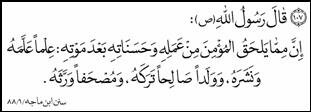 ١٠٧ قَالَ رَسُولُ اللّٰهِ (ص):
إِنَّ مِمَّا يَلْحَقُ الْمُؤْمِنَ مِنْ عَمَلِهِ وَحَسَنَاتِهِ بَعْدَ مَوْتِهِ: عِلْماً عَلَّمَهُ
وَنَشَرَهُ. وَوَلَداً صَالِحاً تَرَكَهُ. وَمُصْحَفاً وَرَّثَهُ.
سنن ابن ماجه/١/٨٨